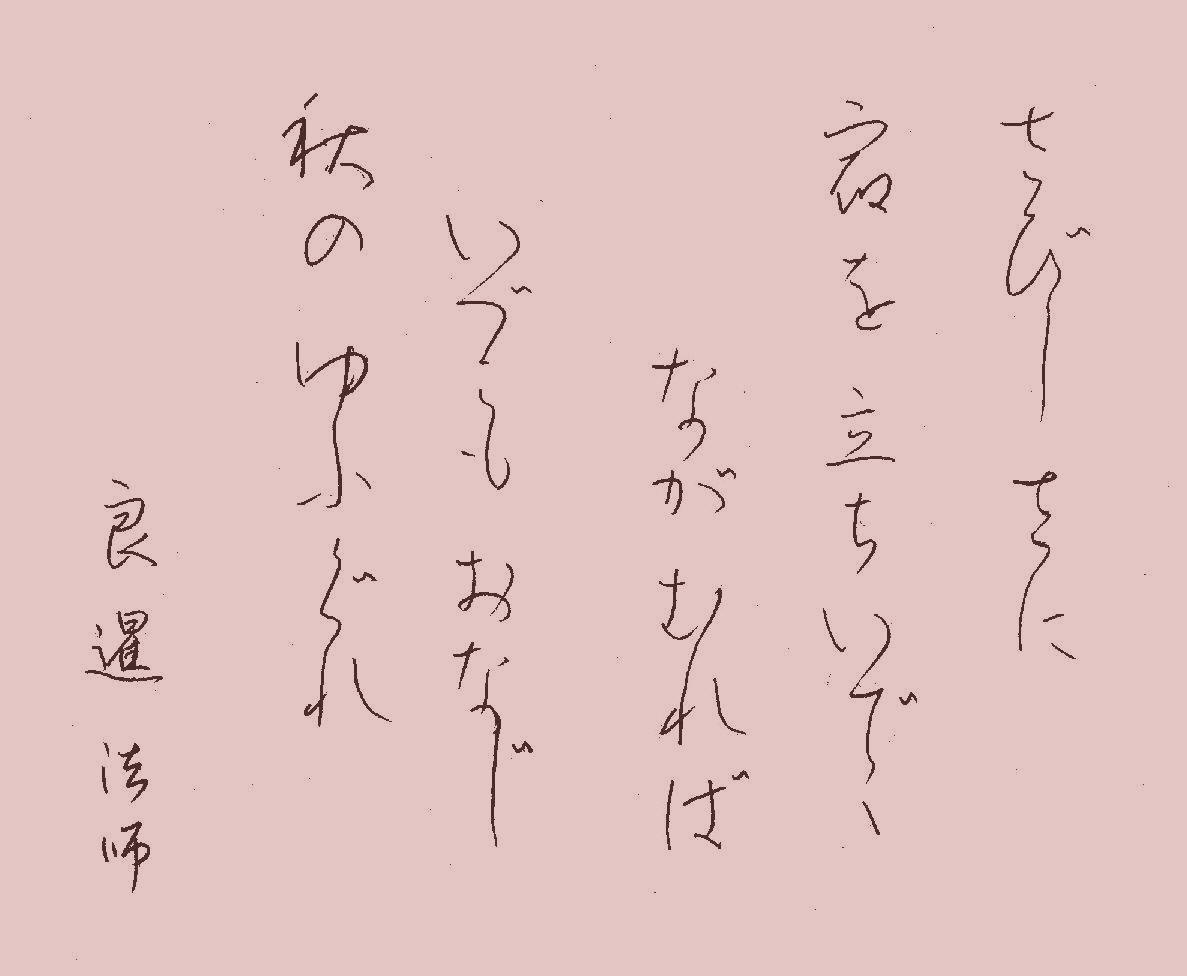 さびしさに
宿を立ちいでゝ
ながむれば
いづくもおなじ
秋のゆふぐれ
良暹法師